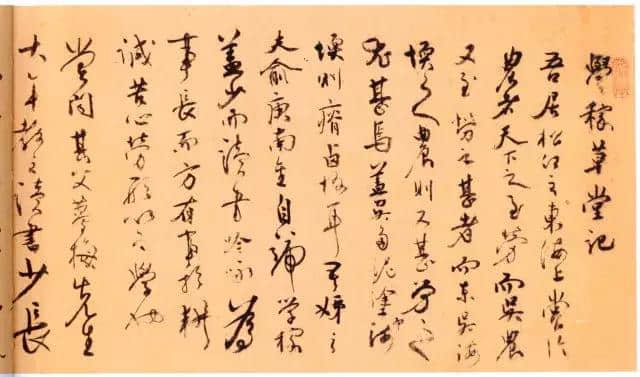 學稼草堂記
吾居松江之東海上嘗謂
農者天下之至勞而吳農
又至勞之甚者而東吳海
壖之人農則又甚勞之
尤甚焉蓋吳泥塗海
壖則瘠鹵耳予之
夫俞庚南金自號學稼
蓋少而讀書吟詠為
事長而方有事於耕
誠苦心勞形以之學也
嘗聞其父夢梅先生
大年教之讀書少長